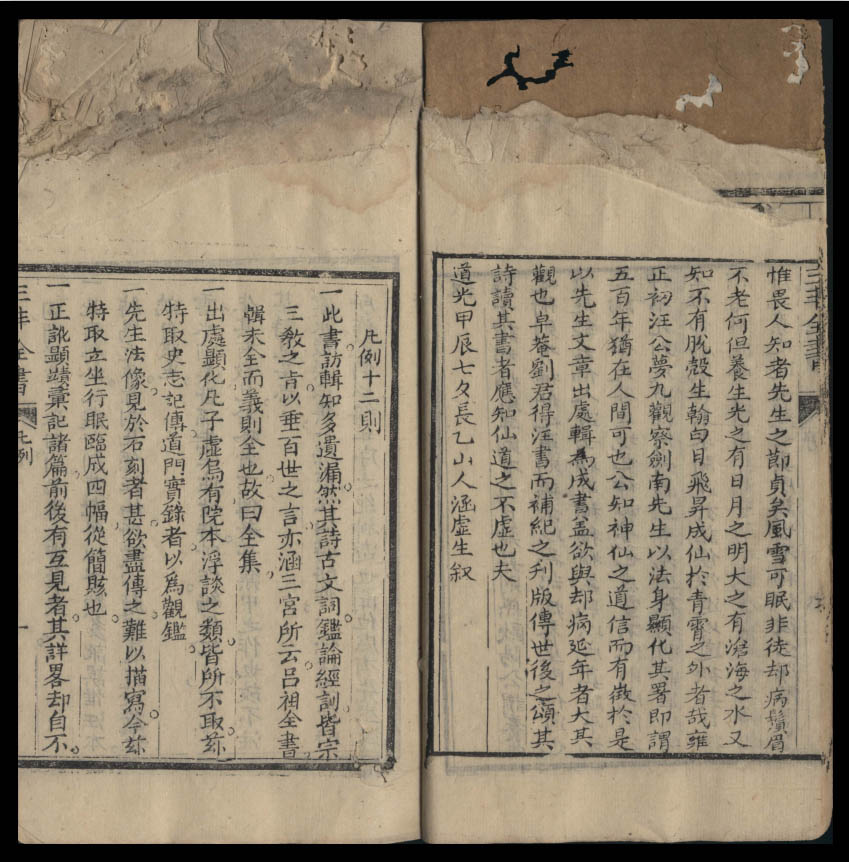 三丰全書
惟畏人知者先生之節貞矣風雪可眠非徒却病鬚眉
不老何但養生光之有日月之明大之有滄海之水又
知不有脫殼生翰白日飛昇成仙於青霄之外者哉雍
正初汪公夢九觀察劍南先生以法身顯化其署即謂
五百年猶在人間可也公知神仙之道信而有徵於是
以先生文章出處輯為成書盖欲與却病延年者大其
觀也卓菴劉君得汪書而補紀之刊版傳世後之頌其
詩讀其書者應知仙道之不虛也夫
道光甲辰七夕長乙山人涵虛生叙
凡例十二則
一此書訪輯知多遺漏然其詩古文詞鑑論經訓皆宗
三教之旨以垂百世之言亦涵三宮所云呂祖全書
輯未全而義則全也故曰全集
一出處顯化凡子虛烏有院本浮談之類皆所不取茲
特取史志記傳道門實錄者以為觀鑑
一先生法像見於石刻者甚欲盡傳之難以描寫今茲
特取立坐行眠臨成四幅從簡賅也
一正訛顯蹟彙記諸篇前後有互見者其詳畧却自不
三丰全書
凡例
一